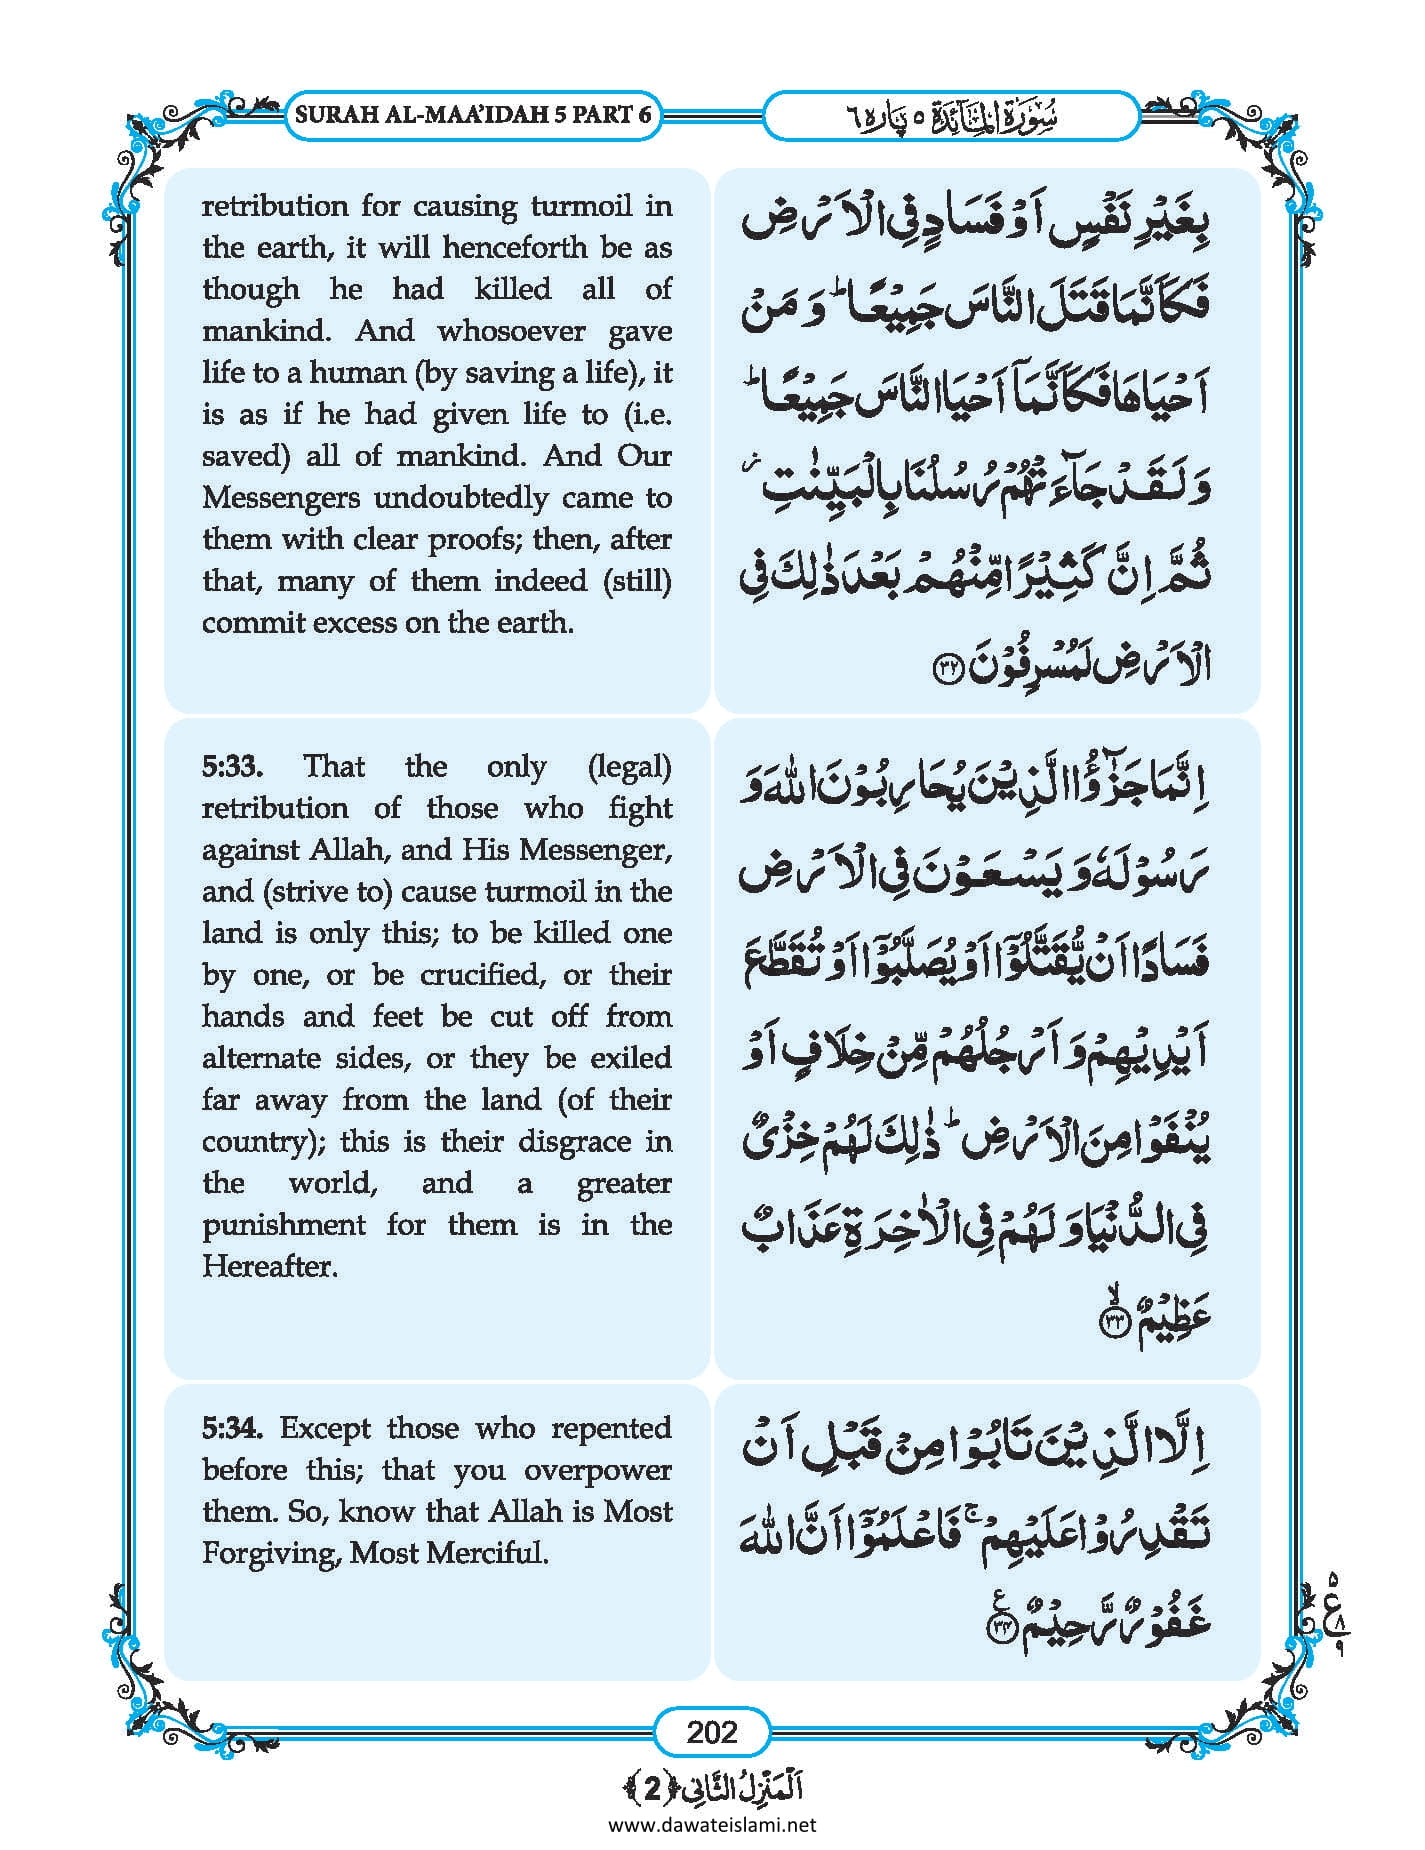 SURAH AL-MAA’IDAH 5 PART 6
سُوْرَۃُ الْمَآئِدَۃ ٥ پَارہ ٦
retribution for causing turmoil in
the earth, it will henceforth be as
though he had killed all of
mankind. And whosoever gave
life to a human (by saving a life), it
is as if he had given life to (i.e.
saved) all of mankind. And Our
Messengers undoubtedly came to
them with clear proofs; then, after
that, many of them indeed (still)
commit excess on the earth.
بِغَيْرِ نَفْسٍ اَوْ فَسَادٍ فِی الْاَرْضِ
فَكَاَنَّمَا قَتَلَ النَّاسَ جَمِیْعًاؕ وَ مَنْ
اَحْیَاهَا فَكَاَنَّمَاۤ اَحْیَا النَّاسَ جَمِیْعًاؕ
وَ لَقَدْ جَآءَتْهُمْ رُسُلُنَا بِالْبَیِّنٰتِ٘
ثُمَّ اِنَّ كَثِیْرًا مِّنْهُمْ بَعْدَ ذٰلِكَ فِی
الْاَرْضِ لَمُسْرِفُوْنَ ﴿۳۲﴾
5:33. That the only (legal)
retribution of those who fight
against Allah, and His Messenger,
and (strive to) cause turmoil in the
land is only this; to be killed one
by one, or be crucified, or their
hands and feet be cut off from
alternate sides, or they be exiled
far away from the land (of their
country); this is their disgrace in
the world, and a greater
punishment for them is in the
Hereafter.
اِنَّمَا جَزٰٓؤُا الَّذِیْنَ یُحَارِبُوْنَ اللّٰهَ وَ
رَسُوْلَهٗ وَ یَسْعَوْنَ فِی الْاَرْضِ
فَسَادًا اَنْ یُّقَتَّلُوْۤا اَوْ یُصَلَّبُوْۤا اَوْ تُقَطَّعَ
اَیْدِیْهِمْ وَ اَرْجُلُهُمْ مِّنْ خِلَافٍ اَوْ
یُنْفَوْا مِنَ الْاَرْضِؕ ذٰلِكَ لَهُمْ خِزْیٌ
فِی الدُّنْیَا وَ لَهُمْ فِی الْاٰخِرَةِ عَذَابٌ
عَظِیْمٌۙ ﴿۳۳﴾
5:34. Except those who repented
before this; that you overpower
them. So, know that Allah is Most
Forgiving, Most Merciful.
اِلَّا الَّذِیْنَ تَابُوْا مِنْ قَبْلِ اَنْ
تَقْدِرُوْا عَلَیْهِمْۚ فَاعْلَمُوْۤا اَنَّ اللّٰهَ
غَفُوْرٌ رَّحِیْمٌ ﴿۳۴﴾ ع
۵
ع ۸
۹
202
اَلْمَنْزِلُ الثَّانِی ﴿2﴾
www.dawateislami.net